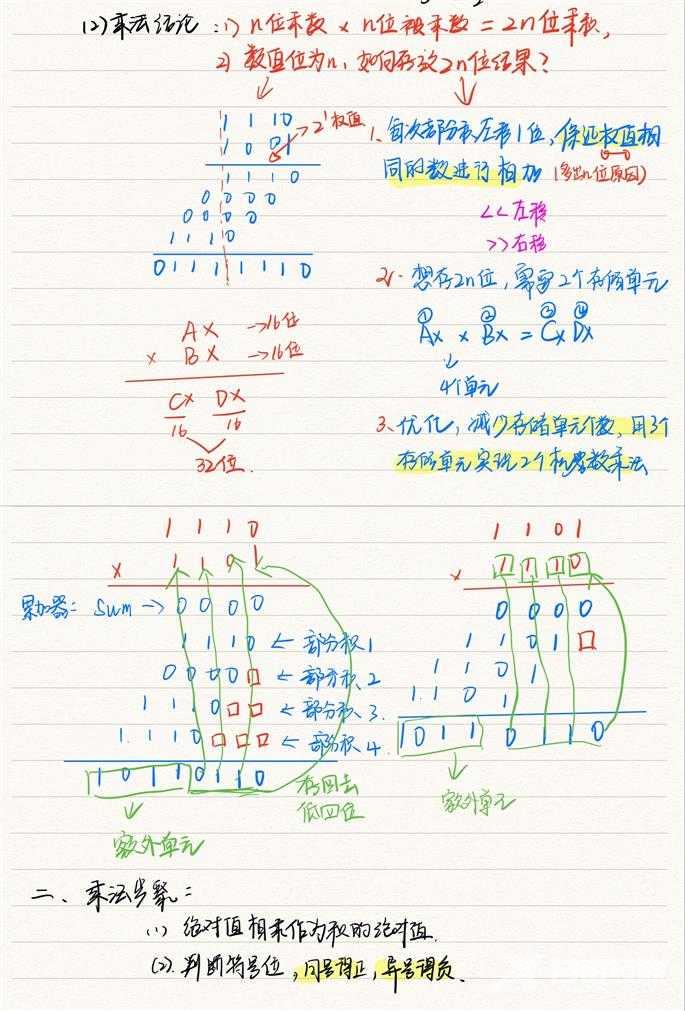 (2) 乘法结论：1) n位乘数 × n位被乘数 = 2n位乘积,
2) 数值位为n, 如何存放2n位结果？
1 1 1 0
1 0 0 1 → 2¹权值
1 1 1 0
0 0 0 0
0 0 0 0
1 1 1 0
0 1 1 1 1 1 1 0
1、每次部分积左移1位, 保证权值相
同的数进行相加 (多出n位原因)
<< 左移
>> 右移
2、想存2n位, 需要2个存储单元
① ② ③ ④
Ax × Bx = Cx Dx
4个单元
AX → 16位
× BX → 16位
CX DX
16 16
32位.
3、优化, 减少存储单元个数, 用3个
存储单元实现2个机器数乘法
1 1 1 0
× 1 1 0 1
累加器: Sum → 0 0 0 0
1 1 1 0 ← 部分积1
0 0 0 0 □ ← 部分积2
1 1 1 0 □ □ ← 部分积3.
1 1 1 0 □ □ □ ← 部分积4.
1 0 1 1 0 1 1 0
存回去
低四位
额外单元
1 1 0 1
× 1 1 1 0
0 0 0 0
1 1 0 1 □
1 1 0 1
1 1 0 1
1 0 1 1 0 1 1 0
额外单元
二、乘法步骤：
(1) 绝对值相乘作为积的绝对值.
(2). 判断符号位, 同号得正, 异号得负.